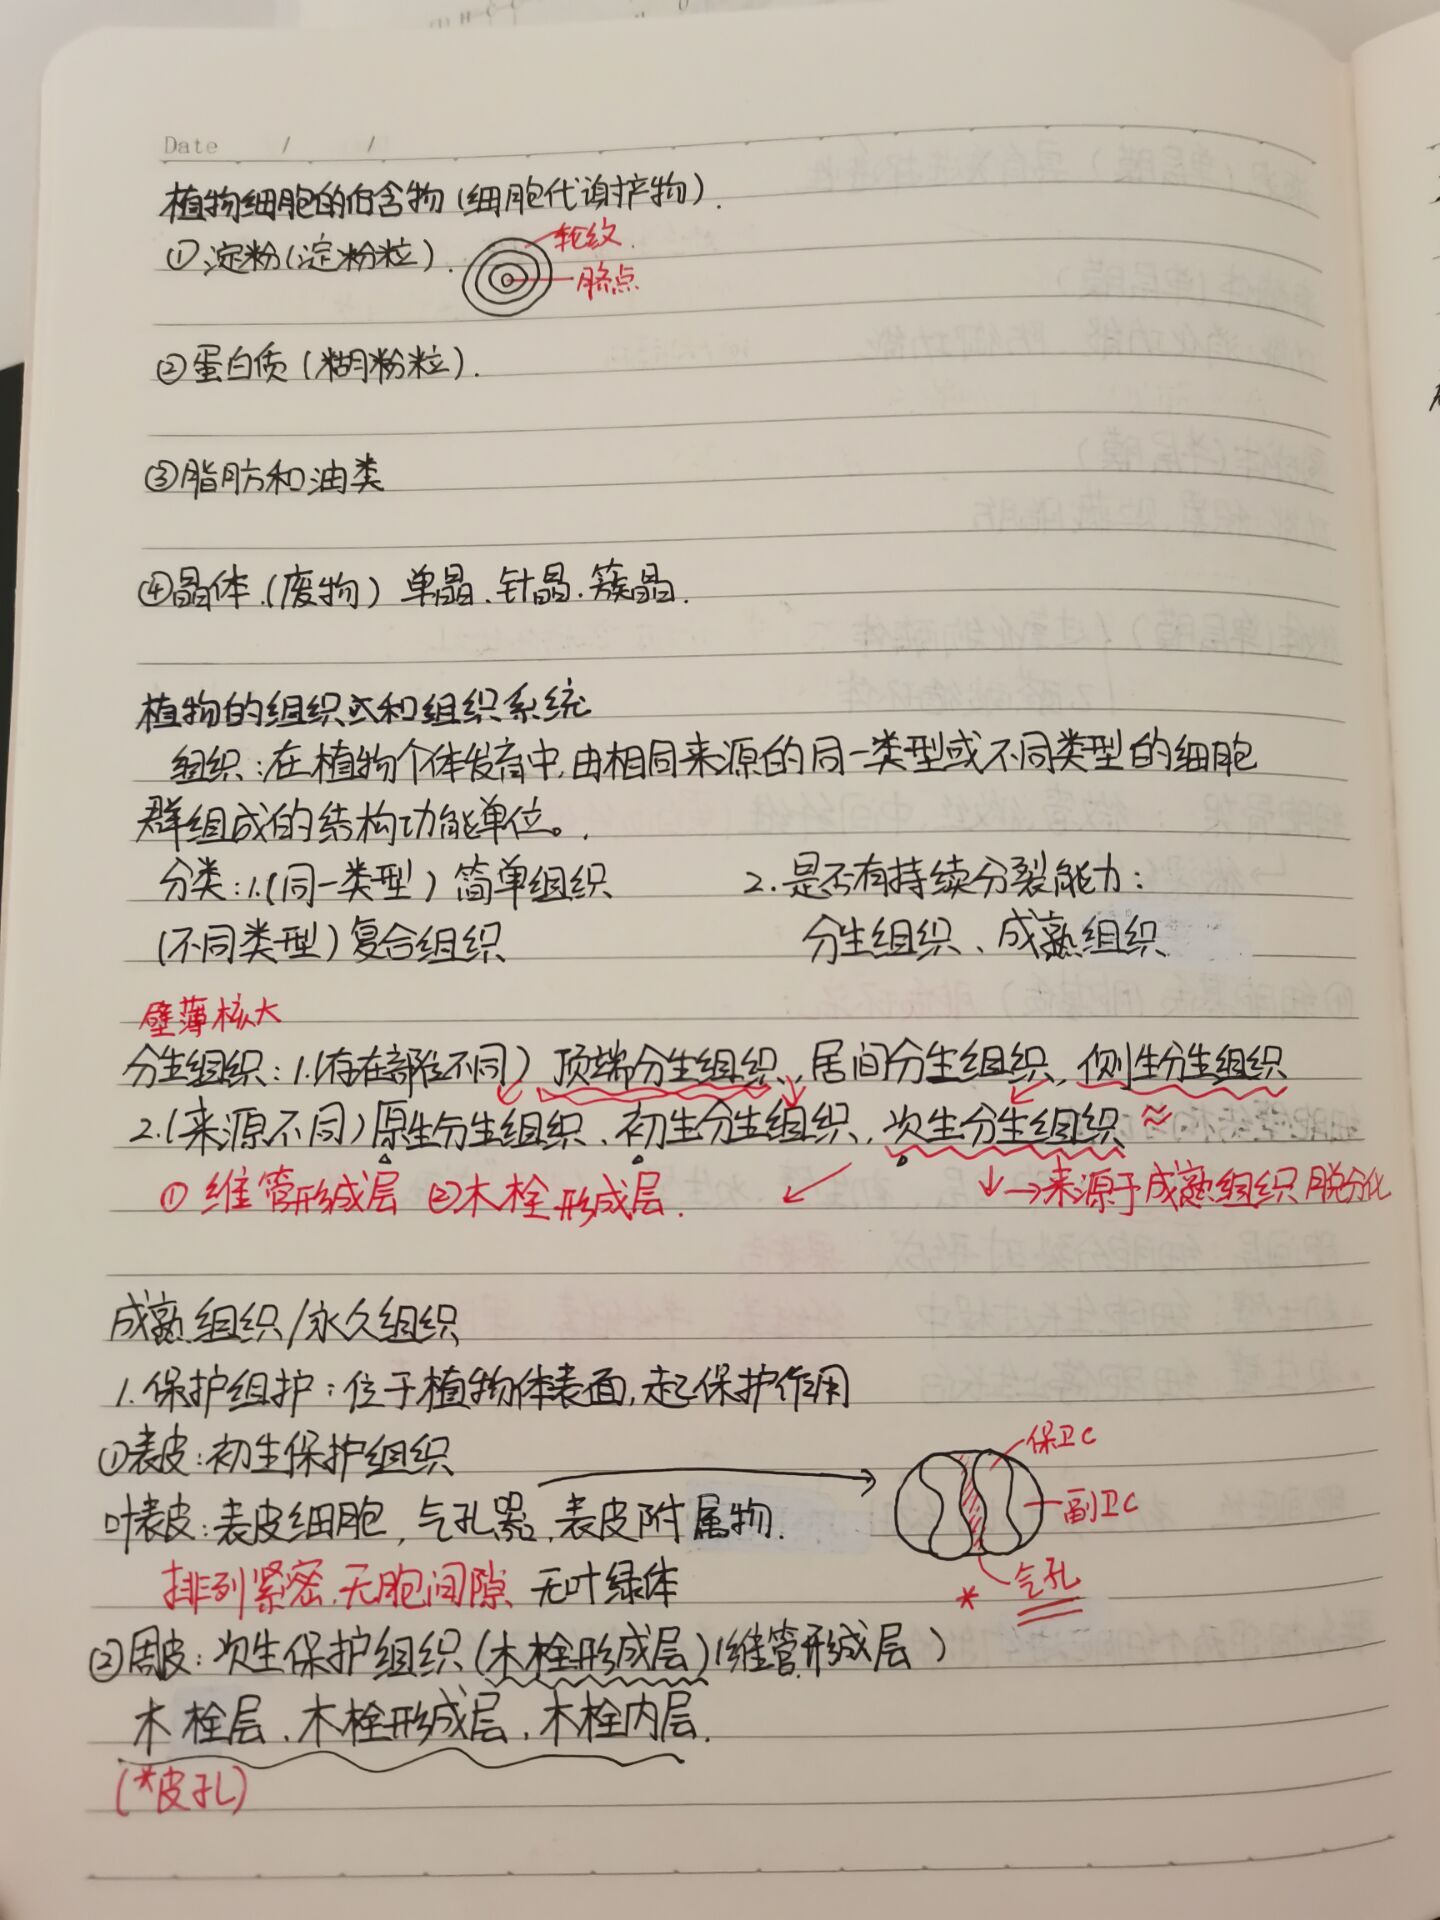 Date / /
植物细胞的后含物(细胞代谢产物).
①淀粉(淀粉粒).
轮纹.
脐点
②蛋白质(糊粉粒).
③脂肪和油类
④晶体.(废物) 单晶、针晶、簇晶.
植物的组织式和组织系统
组织:在植物个体发育中,由相同来源的同一类型或不同类型的细胞
群组成的结构功能单位。.
分类:1.(同一类型)简单组织 2.是否有持续分裂能力:
(不同类型)复合组织 分生组织、成熟组织
壁薄核大
分生组织:1.(存在部位不同)顶端分生组织、居间分生组织、侧生分生组织
2.(来源不同)原生分生组织、初生分生组织、次生分生组织 ≈
①维管形成层 ②木栓形成层. ↓→来源于成熟组织脱分化
成熟组织/永久组织
1.保护组护:位于植物体表面,起保护作用
①表皮:初生保护组织
保卫C
叶表皮:表皮细胞,气孔器,表皮附属物.
副卫C
排列紧密,无胞间隙、无叶绿体
* 气孔
②周皮:次生保护组织(木栓形成层)(维管形成层)
木栓层、木栓形成层,木栓内层.
(*皮孔)